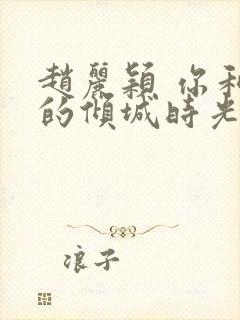 趙麗穎 你和
的傾城時光
浪子